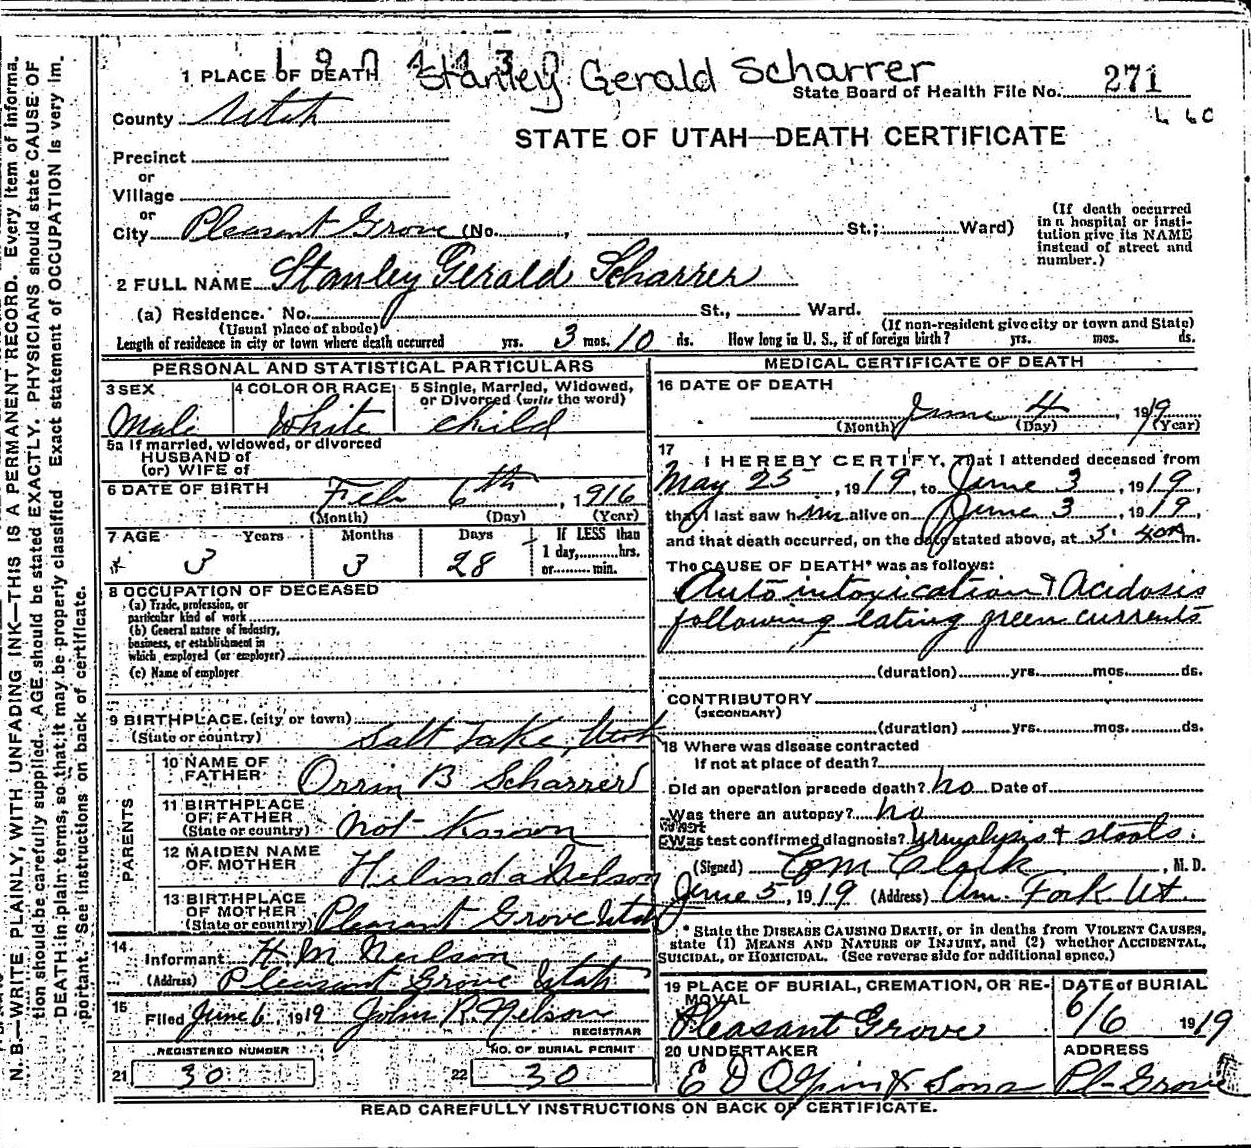 Stanley Gerald Scharrer
1 PLACE OF DEATH
State Board of Health File No. 271
County Utah
STATE OF UTAH—DEATH CERTIFICATE
Precinct
or
Village
or
City Pleasant Grove (No. , St.; Ward)
(If death occurred
in a hospital or insti-
tution give its NAME
instead of street and
number.)
2 FULL NAME Stanley Gerald Scharrer
(a) Residence. No. St., Ward.
(Usual place of abode)
(If non-resident give city or town and State)
Length of residence in city or town where death occurred yrs. 3 mos. 10 ds. How long in U. S., if of foreign birth? yrs. mos. ds.
PERSONAL AND STATISTICAL PARTICULARS
3 SEX
Male
4 COLOR OR RACE
White
5 Single, Married, Widowed,
or Divorced (write the word)
child
5a If married, widowed, or divorced
HUSBAND of
(or) WIFE of
6 DATE OF BIRTH Feb 6th, 1916
(Month) (Day) (Year)
7 AGE Years Months Days
3 3 28
If LESS than
1 day,......hrs.
or......min.
8 OCCUPATION OF DECEASED
(a) Trade, profession, or
particular kind of work
(b) General nature of industry,
business, or establishment in
which employed (or employer)
(c) Name of employer
9 BIRTHPLACE (city or town)
(State or country) Salt Lake, Utah
PARENTS
10 NAME OF
FATHER Orrin B Scharrer
11 BIRTHPLACE
OF FATHER
(State or country) Not Known
12 MAIDEN NAME
OF MOTHER Helinda Nelson
13 BIRTHPLACE
OF MOTHER
(State or country) Pleasant Grove Utah
14
Informant H. M. Neilson
(Address) Pleasant Grove Utah
15
Filed June 6, 1919 John R. Nelson
REGISTRAR
REGISTERED NUMBER
21 30
NO. OF BURIAL PERMIT
22 30
MEDICAL CERTIFICATE OF DEATH
16 DATE OF DEATH
June 4, 1919
(Month) (Day) (Year)
17
I HEREBY CERTIFY, That I attended deceased from
May 25, 1919, to June 3, 1919,
that I last saw him alive on June 3, 1919,
and that death occurred, on the date stated above, at 3:40 A m.
The CAUSE OF DEATH* was as follows:
Auto intoxication & Acidosis
following eating green currents
(duration) yrs. mos. ds.
CONTRIBUTORY
(SECONDARY)
(duration) yrs. mos. ds.
18 Where was disease contracted
If not at place of death?
Did an operation precede death? no Date of
Was there an autopsy? no
What
Was test confirmed diagnosis? Urinalysis & stools.
(Signed) C M Clark, M. D.
June 5, 1919 (Address) Am. Fork Ut.
* State the DISEASE CAUSING DEATH, or in deaths from VIOLENT CAUSES,
state (1) MEANS AND NATURE OF INJURY, and (2) whether ACCIDENTAL,
SUICIDAL, or HOMICIDAL. (See reverse side for additional space.)
19 PLACE OF BURIAL, CREMATION, OR RE-
MOVAL
Pleasant Grove
DATE of BURIAL
6/6 1919
20 UNDERTAKER
E D Olpin & Sons
ADDRESS
Pl- Grove
READ CAREFULLY INSTRUCTIONS ON BACK OF CERTIFICATE.
N. B.—WRITE PLAINLY, WITH UNFADING INK—THIS IS A PERMANENT RECORD. Every item of informa-
tion should be carefully supplied. AGE should be stated EXACTLY. PHYSICIANS should state CAUSE OF
DEATH in plain terms, so that it may be properly classified. Exact statement of OCCUPATION is very im-
portant. See instructions on back of certificate.